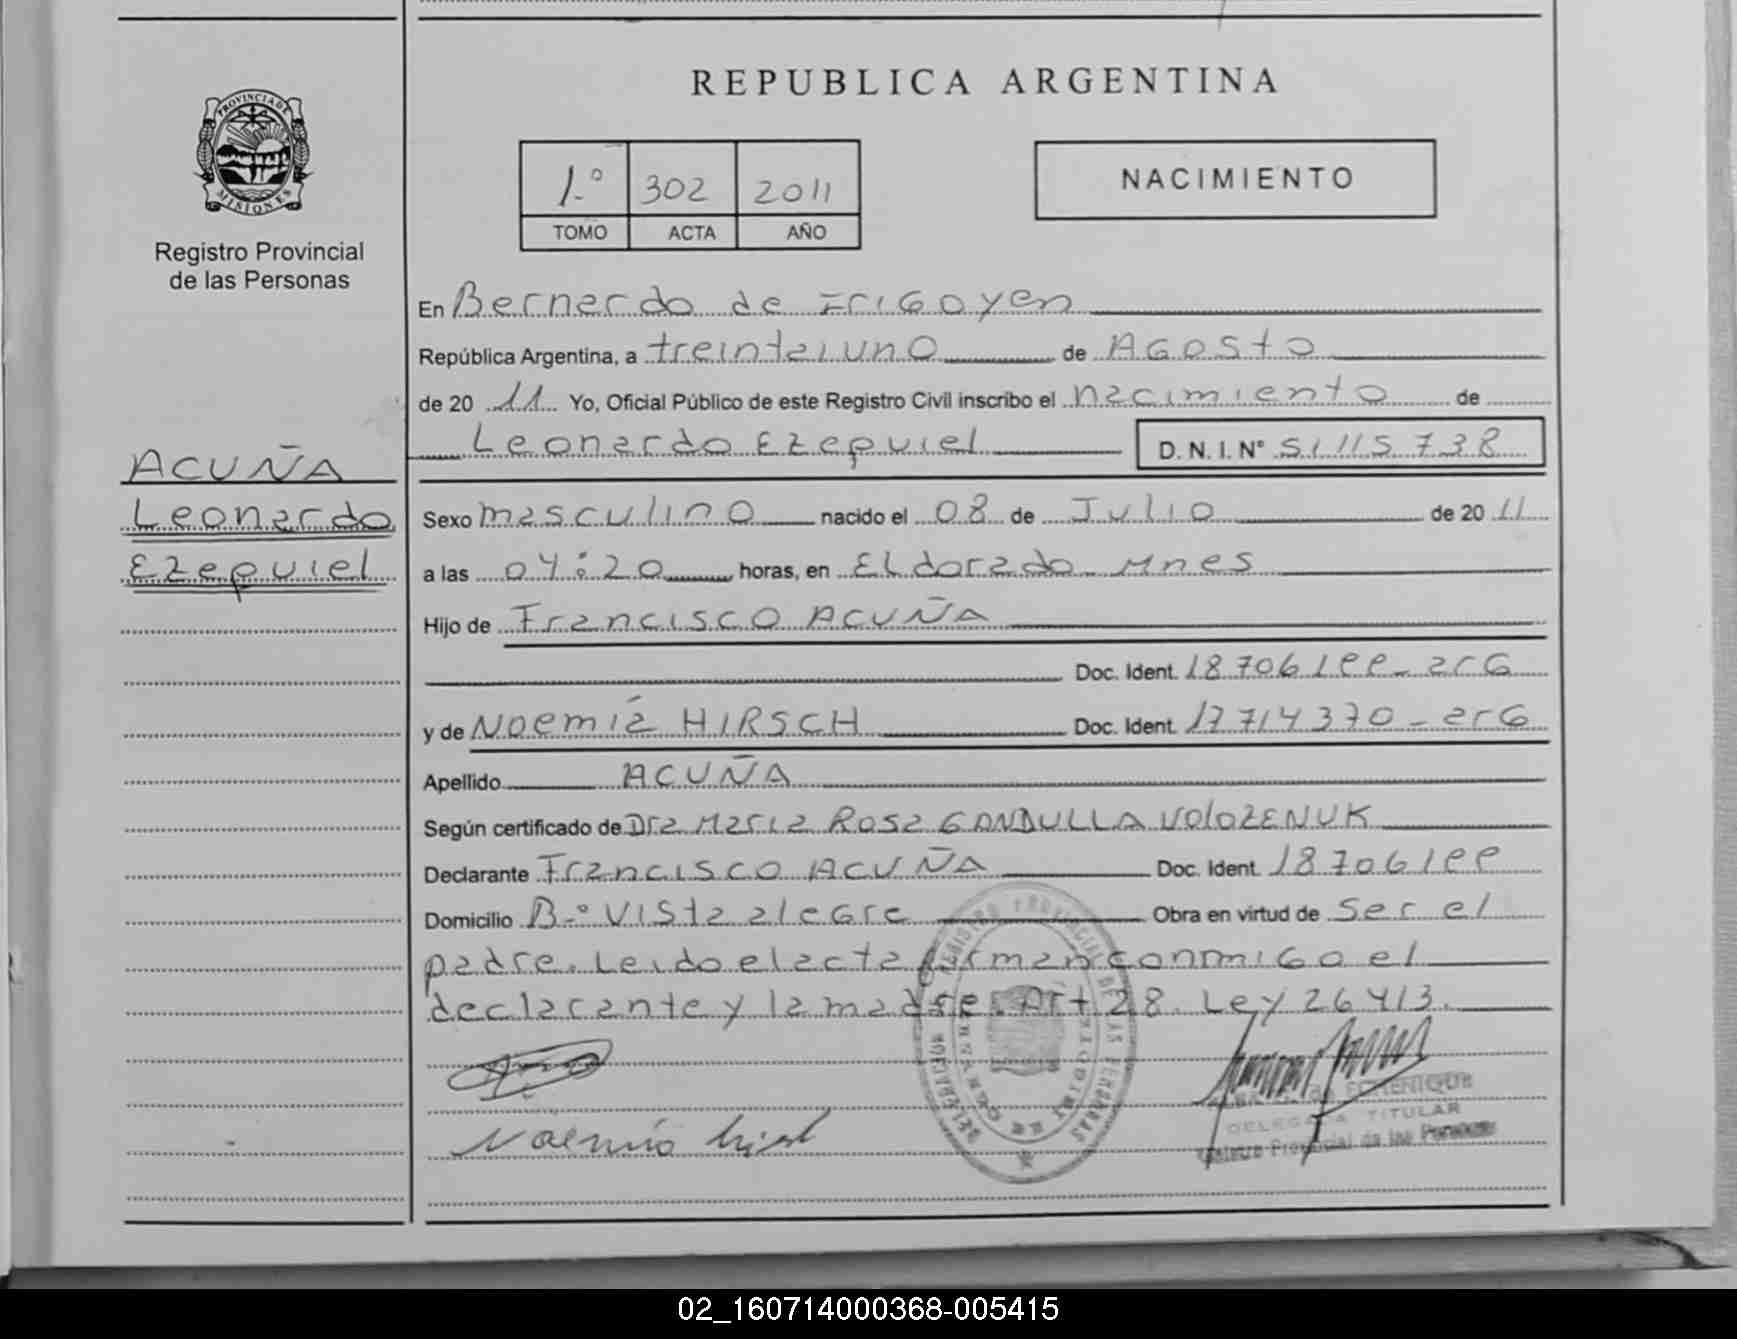 PROVINCIA DE
MISIONES
Registro Provincial
de las Personas
ACUÑA
Leonardo
Ezequiel
REPUBLICA ARGENTINA
1.º 302 2011
TOMO ACTA AÑO
NACIMIENTO
En Bernardo de Irigoyen
República Argentina, a treintaiuno de Agosto
de 20 11 Yo, Oficial Público de este Registro Civil inscribo el nacimiento de
Leonardo Ezequiel D. N. I. Nº 51.115.738
Sexo masculino nacido el 08 de Julio de 20 11
a las 04:20 horas, en Eldorado Mnes
Hijo de Francisco ACUÑA
Doc. Ident. 18706188-arG
y de Noemía HIRSCH Doc. Ident. 17714370-arG
Apellido ACUÑA
Según certificado de Dra Maria Rosa GANDULLA VOLOZENUK
Declarante Francisco ACUÑA Doc. Ident. 18706188
Domicilio B.º Vista alegre Obra en virtud de Ser el
padre. Leido el acta firman conmigo el
declarante y la madre. Art 28. Ley 26413.
DELEGADA TITULAR
Registro Provincial de las Personas
02_160714000368-005415